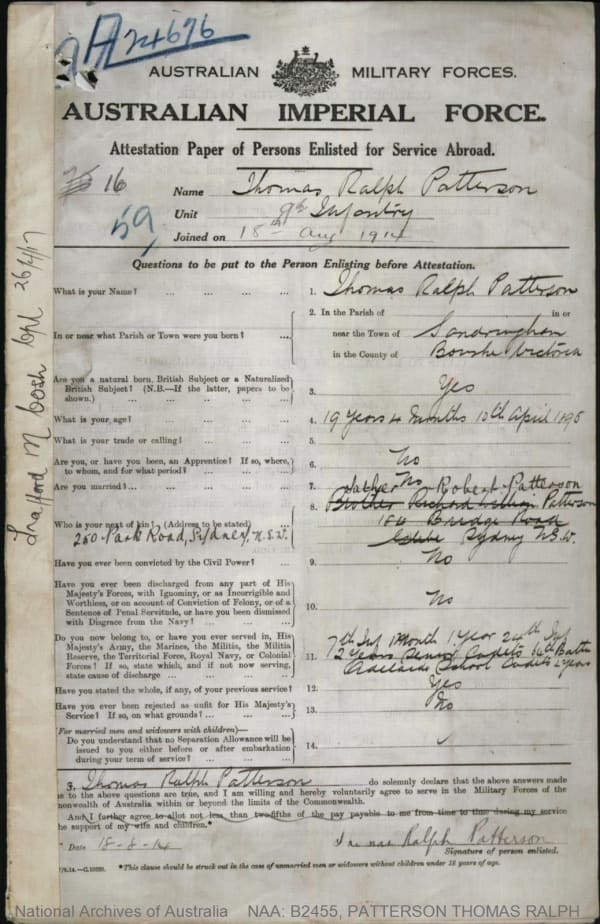 24696
AUSTRALIAN MILITARY FORCES.
AUSTRALIAN IMPERIAL FORCE.
Attestation Paper of Persons Enlisted for Service Abroad.
16
59
Name Thomas Ralph Patterson
Unit 9th Infantry
Joined on 18th Aug 1914
Questions to be put to the Person Enlisting before Attestation.
What is your Name? ... ... ... ... 1. Thomas Ralph Patterson
In or near what Parish or Town were you born? ... 2. In the Parish of in or
near the Town of Sandringham
in the County of Bourke Victoria
Are you a natural born British Subject or a Naturalized
British Subject? (N.B.—If the latter, papers to be
shown.) ... ... ... ... 3. Yes
What is your age? ... ... ... ... 4. 19 Years 4 Months 10th April 1895
What is your trade or calling? ... ... ... 5.
Are you, or have you been, an Apprentice? If so, where,
to whom, and for what period? ... ... 6. No
Are you married? ... ... ... ... 7. No
Who is your next of kin? (Address to be stated) ... 8. Father Robert Patterson
Brother Richard William Patterson
184 Bridge Road
Glebe Sydney N.S.W.
260 Park Road, Sydney, N.S.W.
Have you ever been convicted by the Civil Power? ... 9. No
Have you ever been discharged from any part of His
Majesty's Forces, with Ignominy, or as Incorrigible and
Worthless, or on account of Conviction of Felony, or of a
Sentence of Penal Servitude, or have you been dismissed
with Disgrace from the Navy? ... ... 10. No
Do you now belong to, or have you ever served in, His
Majesty's Army, the Marines, the Militia, the Militia
Reserve, the Territorial Force, Royal Navy, or Colonial
Forces? If so, state which, and if not now serving,
state cause of discharge ... ... ... 11. 7th Inf 1 Month 1 Year 24th Inf
2 Years Senior Cadets 16th Battn
Adelaide School Cadets 2 Years
Have you stated the whole, if any, of your previous service? 12. Yes
Have you ever been rejected as unfit for His Majesty's
Service? If so, on what grounds? ... ... 13. No
(For married men and widowers with children)—
Do you understand that no Separation Allowance will be
issued to you either before or after embarkation
during your term of service? ... ... 14.
3. Thomas Ralph Patterson do solemnly declare that the above answers made
to the above questions are true, and I am willing and hereby voluntarily agree to serve in the Military Forces of the
monwealth of Australia within or beyond the limits of the Commonwealth.
And I further agree to allot not less than two-fifths of the pay payable to me from time to time during my service
the support of my wife and children.*
Date 18-8-14
Ralph Patterson
Signature of person enlisted.
*This clause should be struck out in the case of unmarried men or widowers without children under 18 years of age.
National Archives of Australia NAA: B2455, PATTERSON THOMAS RALPH